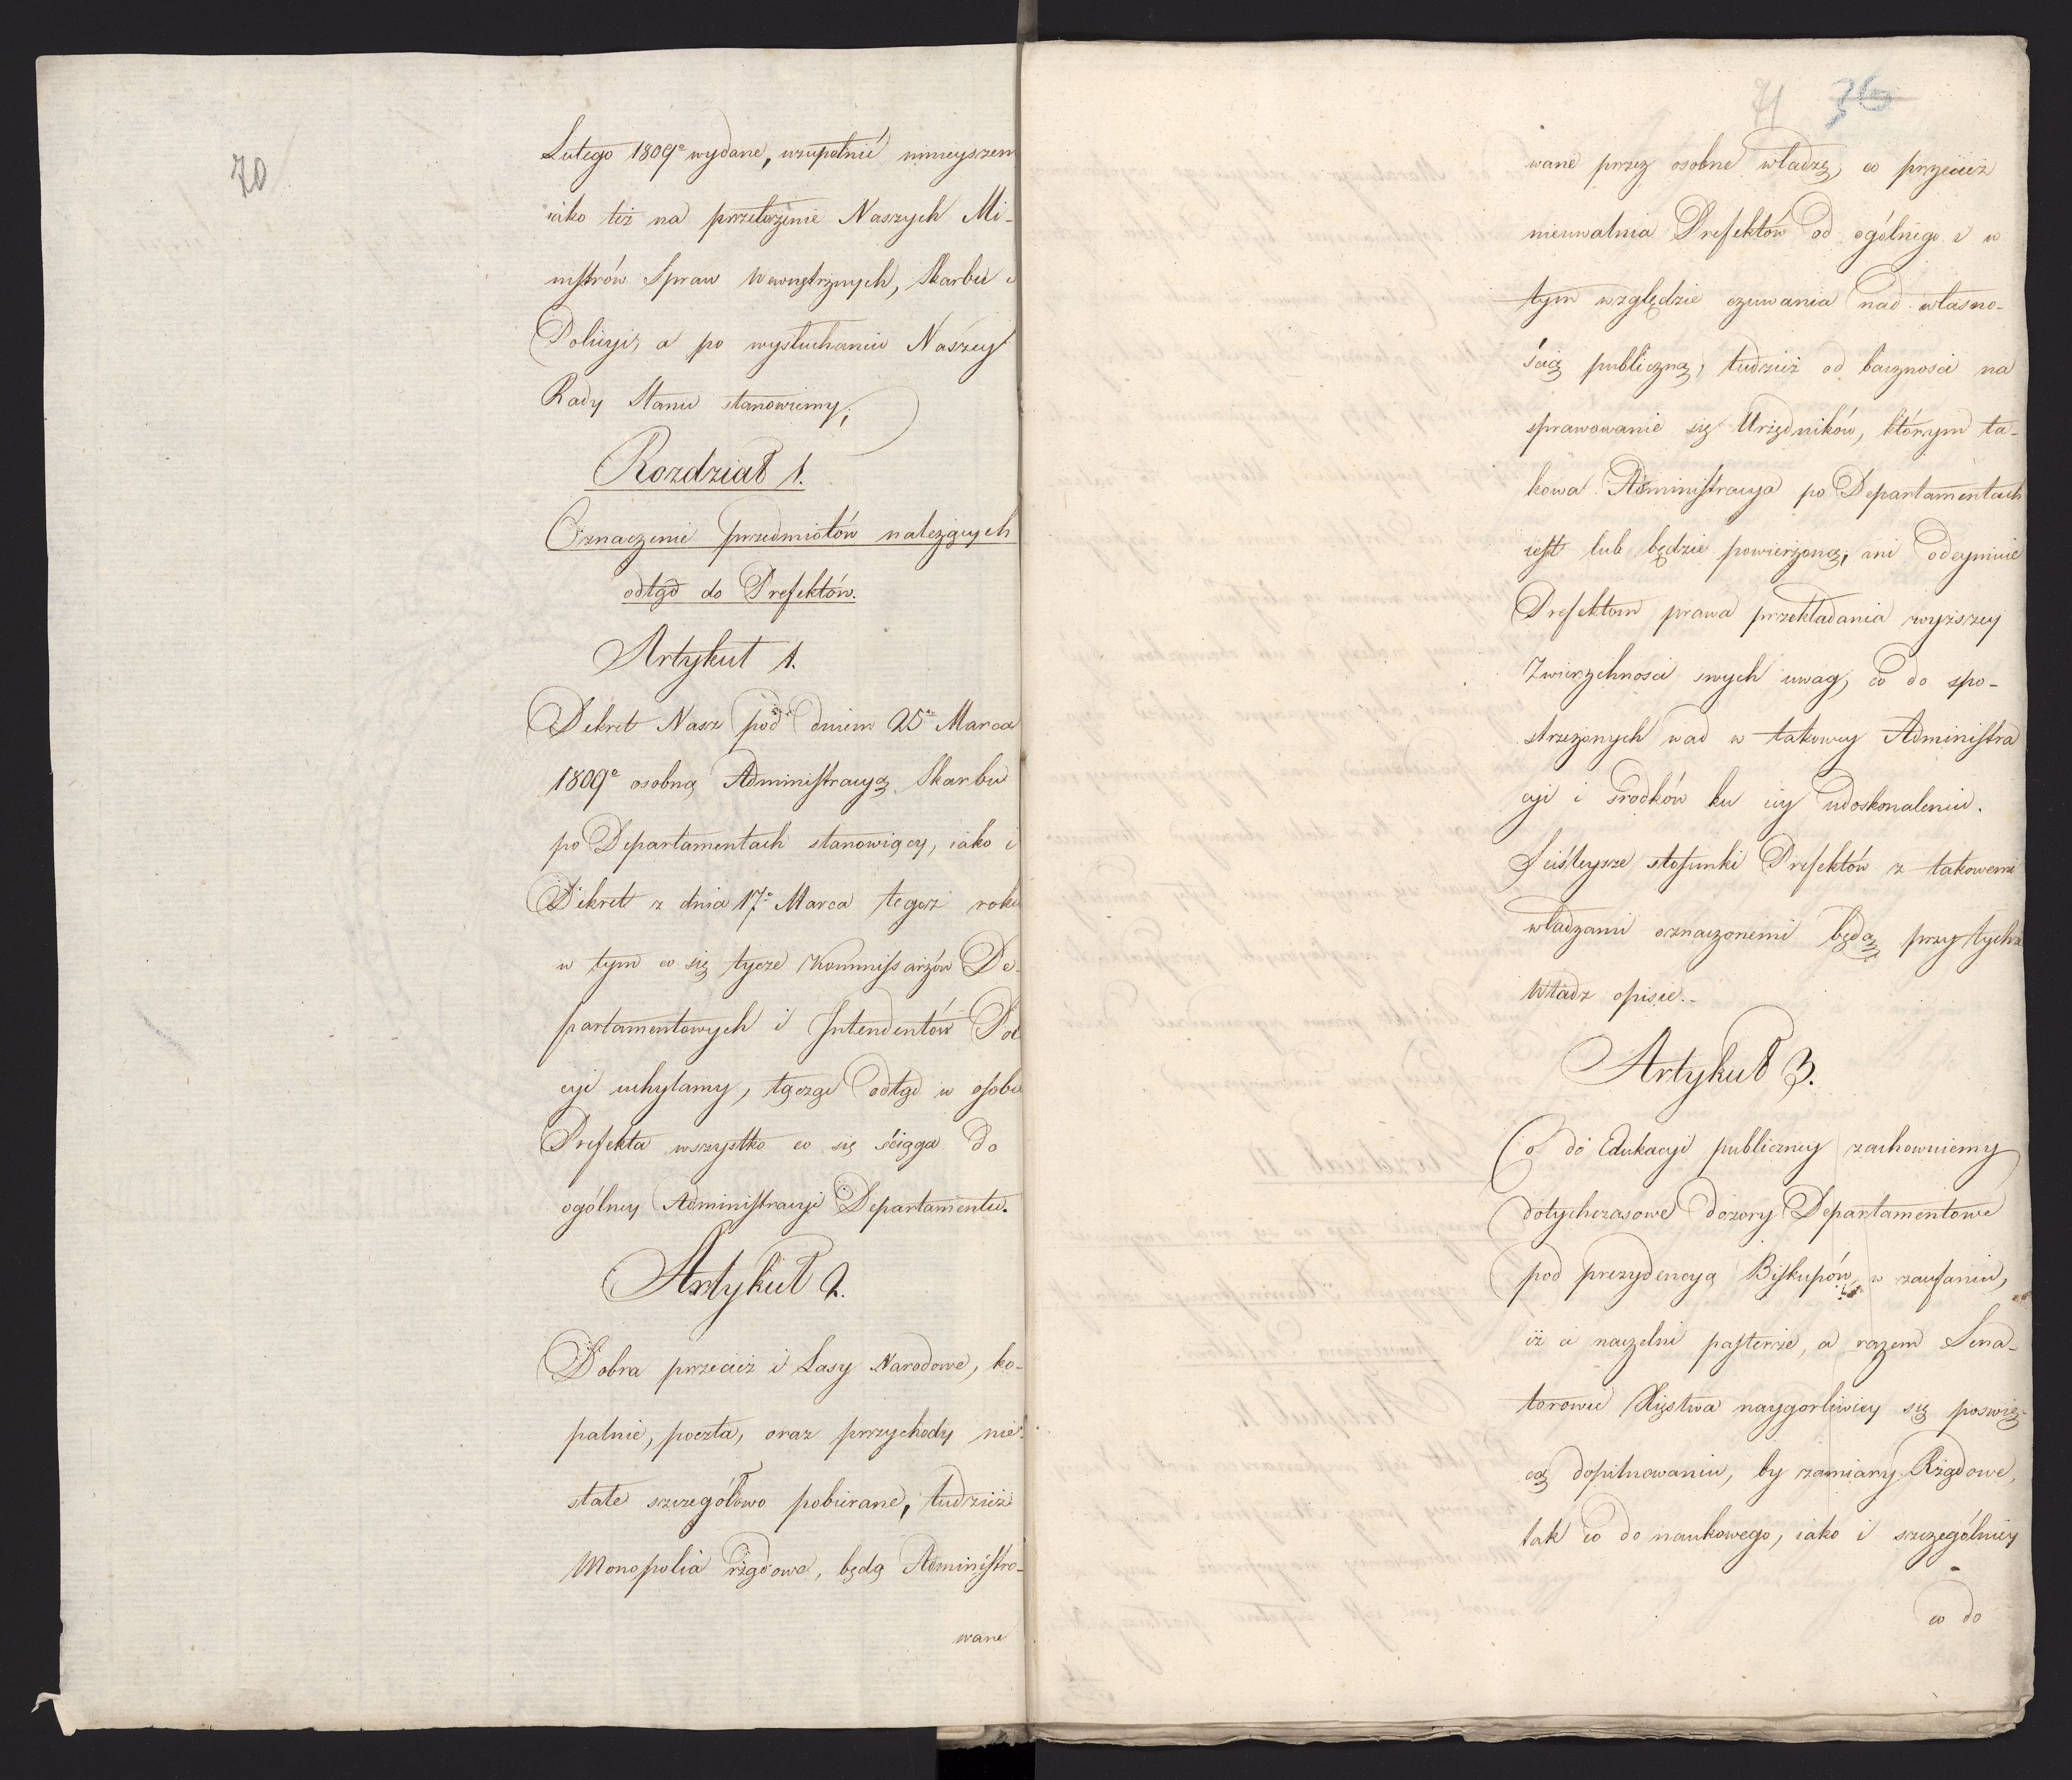 70
Lutego 1809º wydane, uzupełnić ninieyszem
iako też na przełożenie Naszych Mi-
nistrów Spraw Wewnętrznych, Skarbu i
Policyi, a po wysłuchaniu Naszey
Rady Stanu stanowiemy;
Rozdział 1.
Oznaczenie przedmiotów należących
odtąd do Prefektów.
Artykuł 1.
Dekret Nasz pod dniem 25º Marca
1809º osobną Administracyą Skarbu
po Departamentach stanowiący, iako i
Dekret z dnia 17º Marca tegoż roku
w tym co się tycze Kommissarzów De-
partamentowych i Intendentów Pol
cyi uchylamy, łącząc odtąd w osobie
Prefekta wszystko co się ściąga do
ogólney Administracyi Departamentu.
Artykuł 2.
Dobra przecież i Lasy Narodowe, ko-
palnie, poczta, oraz przychody nie-
stałe szczegółowo pobierane, tudzież
Monopolia rządowe, będą Administro-
wane
71 36
wane przez osobne władzę, co przecież
nieuwalnia Prefektów od ogólnego i w
tym względzie czuwania nad własno-
ścią publiczną, tudzież od baczności na
sprawowanie się Urzędników, którym ta-
kowa Administracya po Departamentach
iest lub będzie powierzoną, ani odeymuie
Prefektom prawa przekładania wyższey
Zwierzchności swych uwag, co do spo-
strzeżonych wad w takowey Administra
cyi i środków ku iey udoskonaleniu.
Ściśleysze stosunki Prefektów z takowemi
władzami oznaczonemi będą przy tychże
Władz opisie.-
Artykuł 3.
Co do Edukacyi publiczney zachowuiemy
dotychczasowe dozory Departamentowe
pod prezydencyą Biskupów, w zaufaniu,
iż ci naczelni pasterze, a razem Sena-
torowie Xięstwa naygorliwiey się poswię-
cą dopilnowaniu, by zamiary Rządowe,
tak co do naukowego, iako i szczególniey
co do